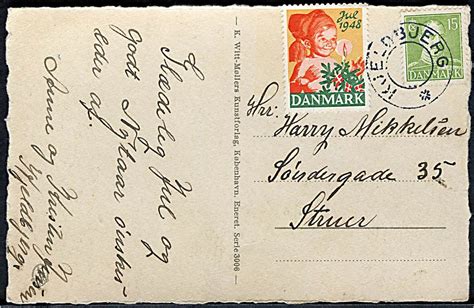 Glædelig Jul og
Godt Nytaar ønskes
eder af.
Anne og Kristian
Kjeldbjerg.
K. Witt-Møllers Kunstforlag, København. Eneret. Serie 3006
Jul
1948
DANMARK
KJELDBJERG
15
DANMARK
Hr: Harry Mikkelsen
Søndergade 35
Struer